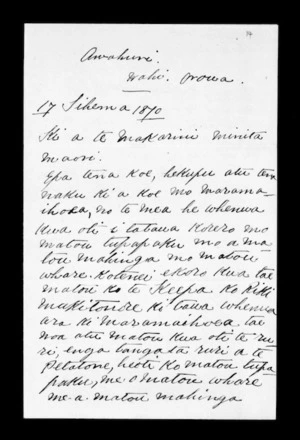 Awahuri.
Wahi. Orowa.
17 Tihema 1870
Ki a te Makarini minita
maori.
Epa tena koe, hekupu atu tena
naku ki a koe mo marama-
ihoea, no te mea he whenua
kua oti i tatawa korero mo
matou tupapaku mo a ma
tou mahinga mo matou
whare. Kotenei e koro kua tae
matou ko te Keepa ko Kiki
ki tawa whenua
ara ki Maramaihoea, tae
noa atu matou kua oti te ru
ri, enga tangata ruri a te
Petatone, heoti ko matou tupa
paku, me o matou whare
me a matou mahinga